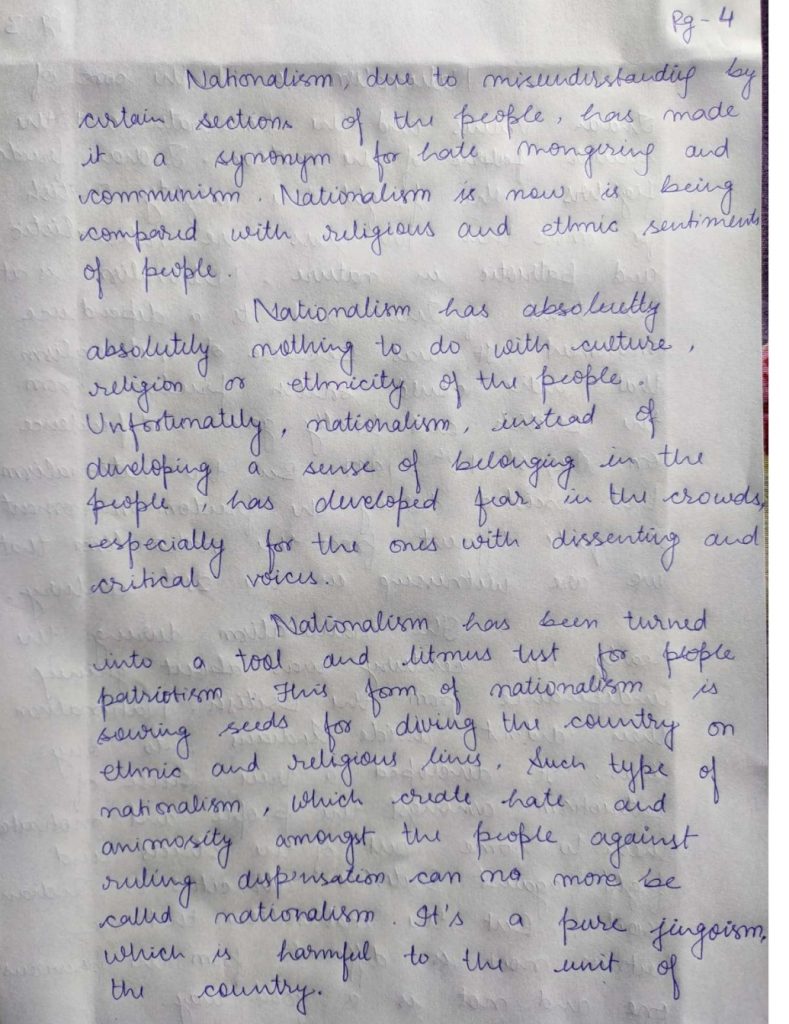 Pg - 4
Nationalism, due to misunderstanding by
certain sections of the people, has made
it a synonym for hate mongering and
communism. Nationalism is now is being
compared with religious and ethnic sentiments
of people.
Nationalism has absolutely
absolutely nothing to do with culture,
religion or ethnicity of the people.
Unfortunately, nationalism, instead of
developing a sense of belonging in the
people, has developed fear in the crowds,
especially for the ones with dissenting and
critical voices.
Nationalism has been turned
into a tool and litmus test for people
patriotism. This form of nationalism is
sowing seeds for diving the country on
ethnic and religious lines. Such type of
nationalism, which create hate and
animosity amongst the people against
ruling dispensation can no more be
called nationalism. It's a pure jingoism,
which is harmful to the unit of
the country.